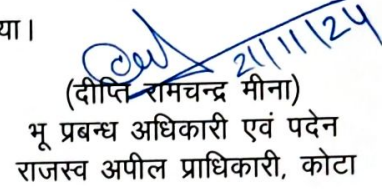 या।
21/11/24
(दीप्ति रामचन्द्र मीना)
भू प्रबन्ध अधिकारी एवं पदेन
राजस्व अपील प्राधिकारी, कोटा